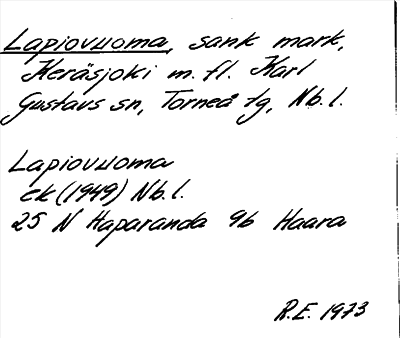 Lapiovuoma, sank mark,
Keräsjoki m. fl. Karl
Gustavs sn, Torneå tg, Nb. l.
Lapiovuoma
ek (1949) Nb. l.
25 N Haparanda 9b Haara
R.E. 1973